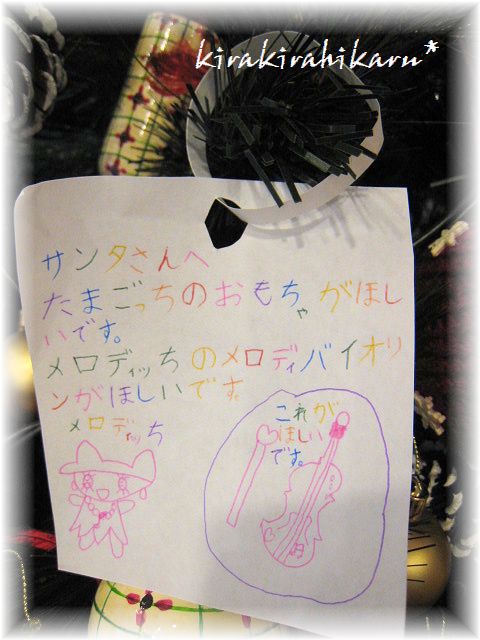 kirakirahikaru*
サンタさんへ
たまごっちのおもちゃがほし
いです。
メロディッちのメロディバイオリ
ンがほしいです。
メロディッち
これが
ほしい
です。